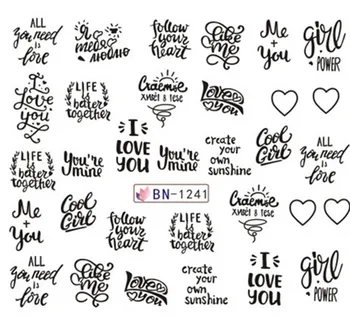 ALL
you need
is
love
Я
тебя
люблю
follow
your
heart
Like
me
Me
+
You
girl
POWER
I
Love
you
LIFE
is
better
together
Счастье
живёт в тебе
Love
you
LIFE
is
better
together
You're
mine
I
LOVE
YOU
You're
mine
create
your own
sunshine
Cool
Girl
girl
POWER
BN-1241
Me
+
You
Cool
Girl
follow
your
heart
LIFE
is
better
together
Счастье
живёт в тебе
ALL
you need
is
love
Like
me
Love
you
create
your own
sunshine
I
LOVE
YOU
girl
POWER